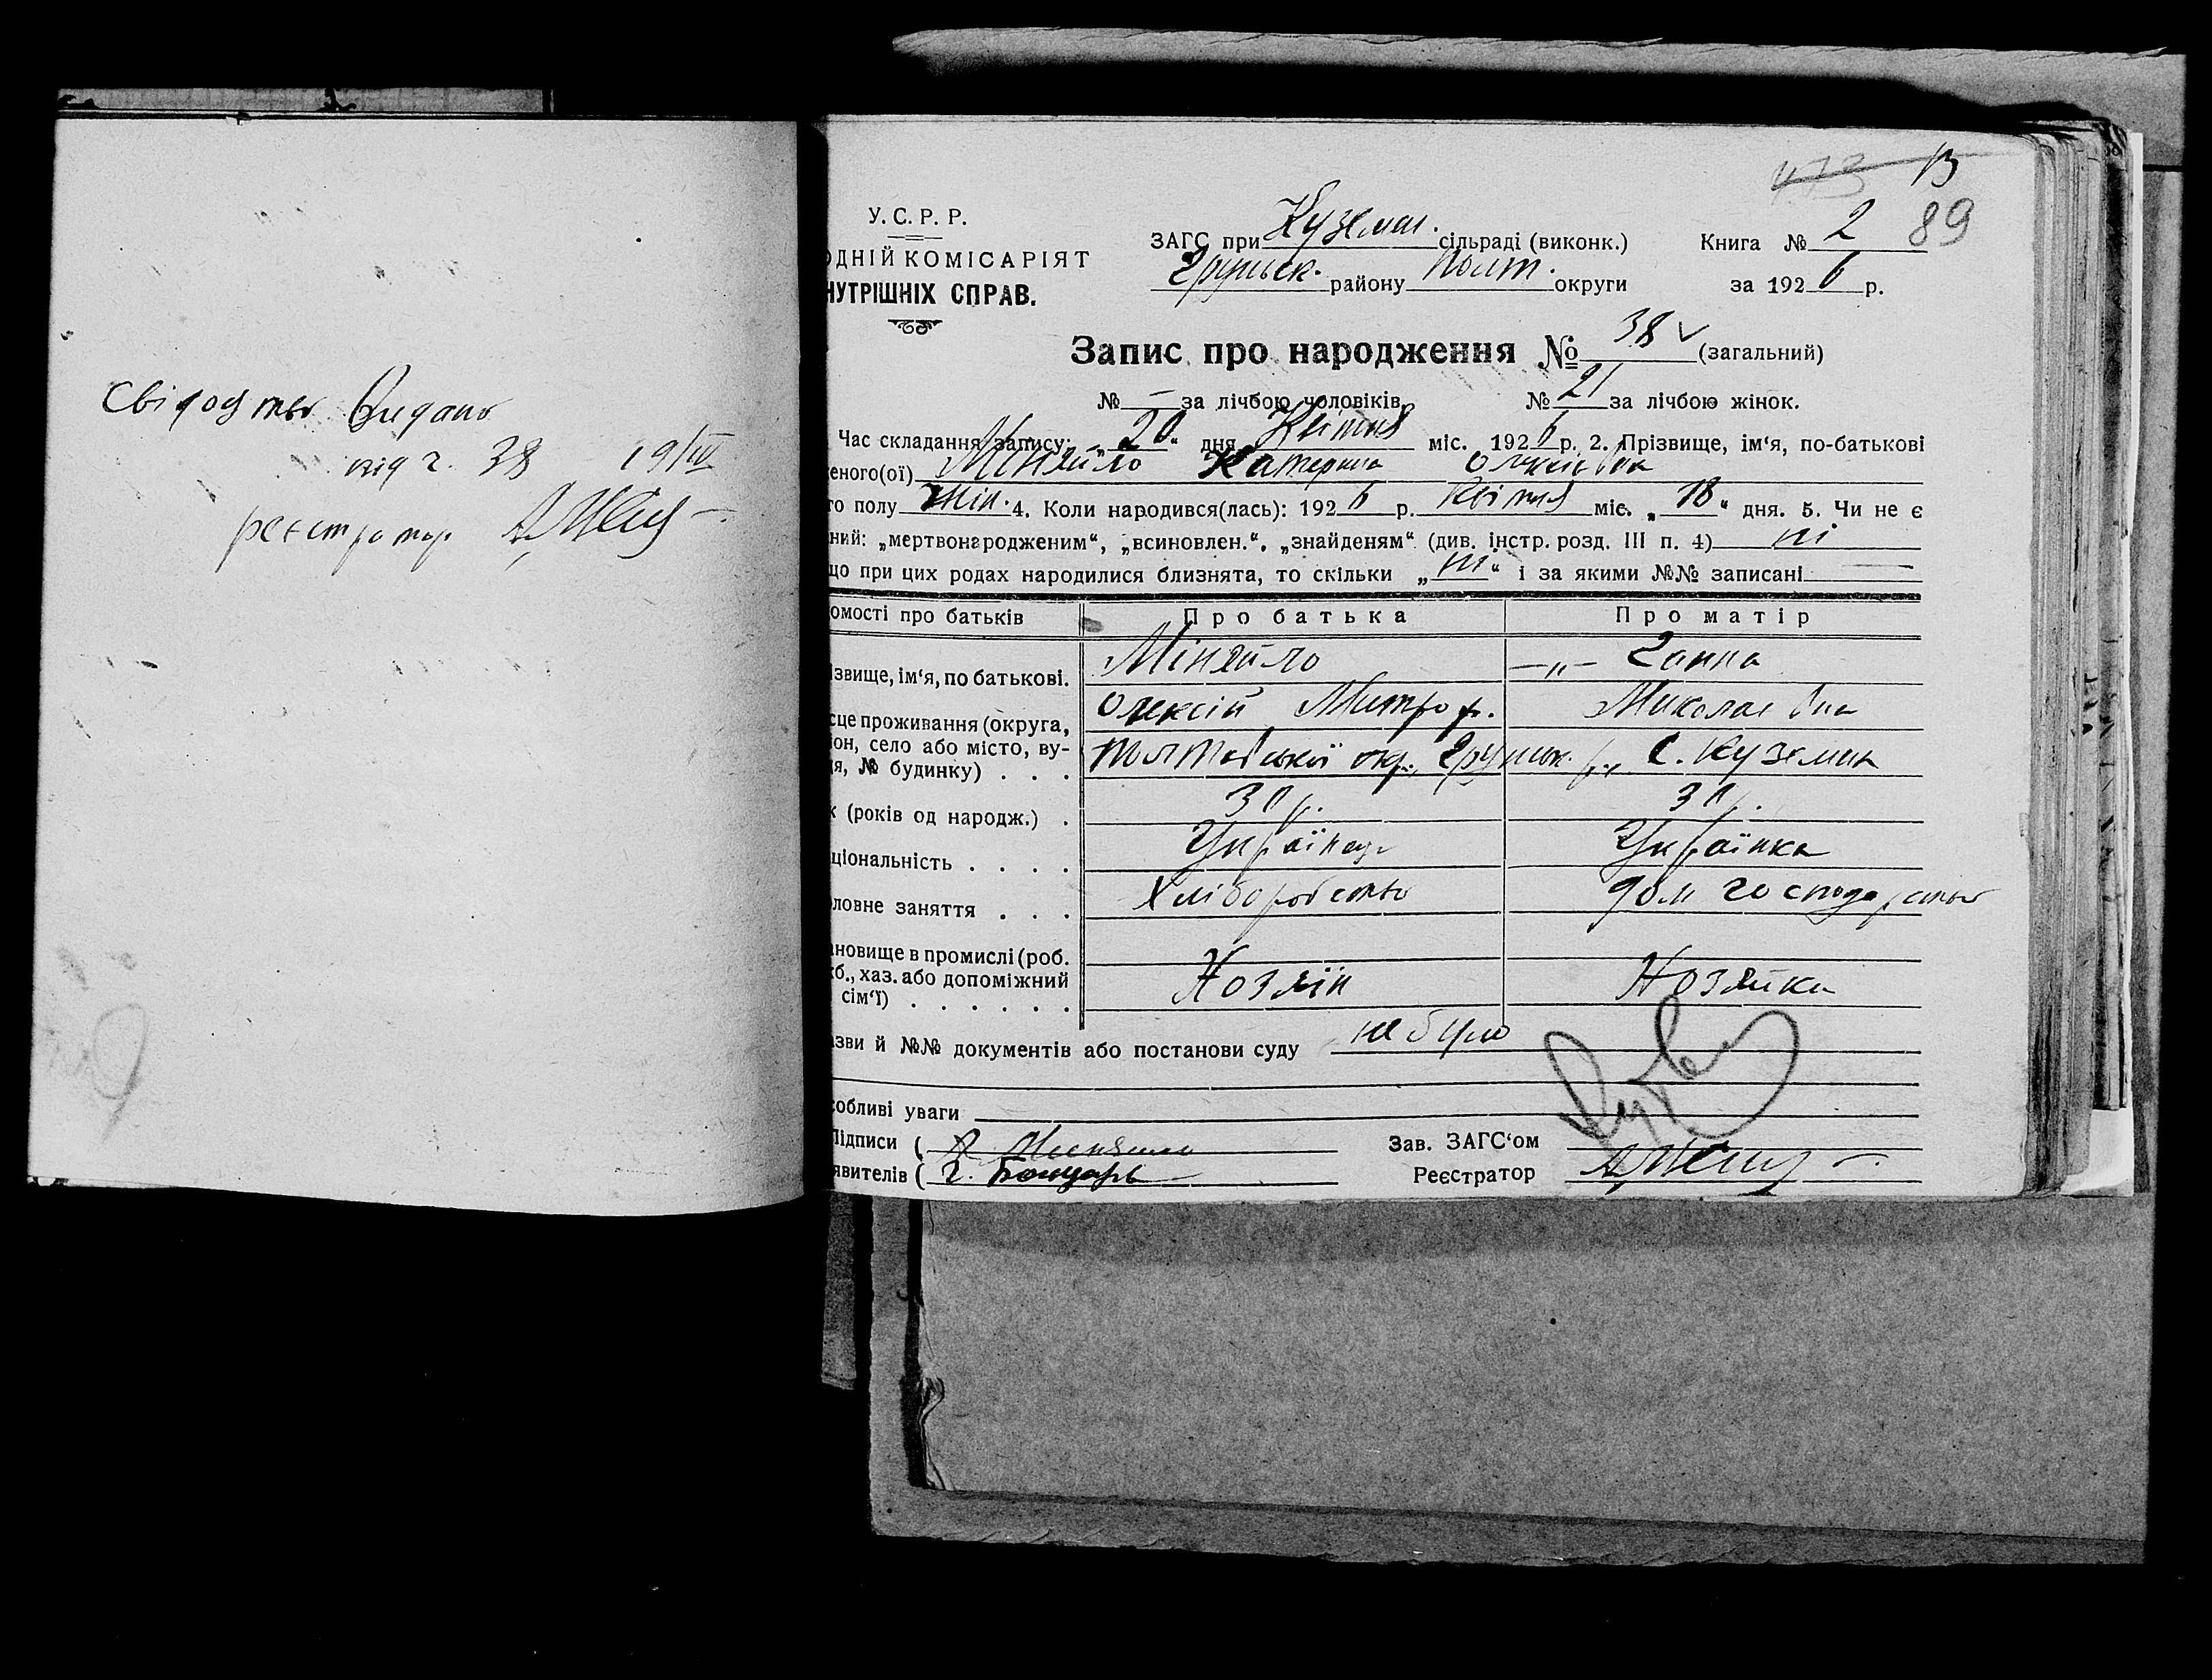 Свідоцтво видано
від ч. 38 19/IV
реєстратор
473 13
89
У. С. Р. Р.
ОДНІЙ КОМІСАРІЯТ
НУТРІШНІХ СПРАВ.
ЗАГС при Куземен. сільраді (виконк.)
Груньск. району Полт. округи
Книга № 2
за 1926 р.
Запис про народження № 38 (загальний)
№ — за лічбою чоловіків, № 21 за лічбою жінок.
Час складання запису: „20“ дня Квітня міс. 1926 р. 2. Прізвище, ім'я, по-батькові
еного(ої) Міняйло Катерина Олексіівна
го полу жін. 4. Коли народився(лась): 1926 р. Квітня міс. „18“ дня. 5. Чи не є
ний: „мертвонародженим“, „всиновлен.“, „знайденям“ (див. інстр. розд. III п. 4) ні
що при цих родах народилися близнята, то скільки „ні“ і за якими №№ записані —
омості про батьків Про батька Про матір
ізвище, ім'я, по батькові. Міняйло —„— Ганна
Олексій Митроф. Миколаівна
сце проживання (округа,
он, село або місто, ву-
я, № будинку) . . . Полтавської окр., Груньск. р., с. Куземин
к (років од народж.) . 30 р. 30 р.
ціональність . . . . Українець Українка
ловне заняття . . . Хліборобство дом господарство
ановище в промислі (роб.
б., хаз. або допоміжний
сім'ї) . . . . . . Хозяїн Хозяйка
зви й №№ документів або постанови суду не було
собливі уваги
Підписи ( А Миняйло Зав. ЗАГС'ом
явителів ( Г. Бондарь Реєстратор